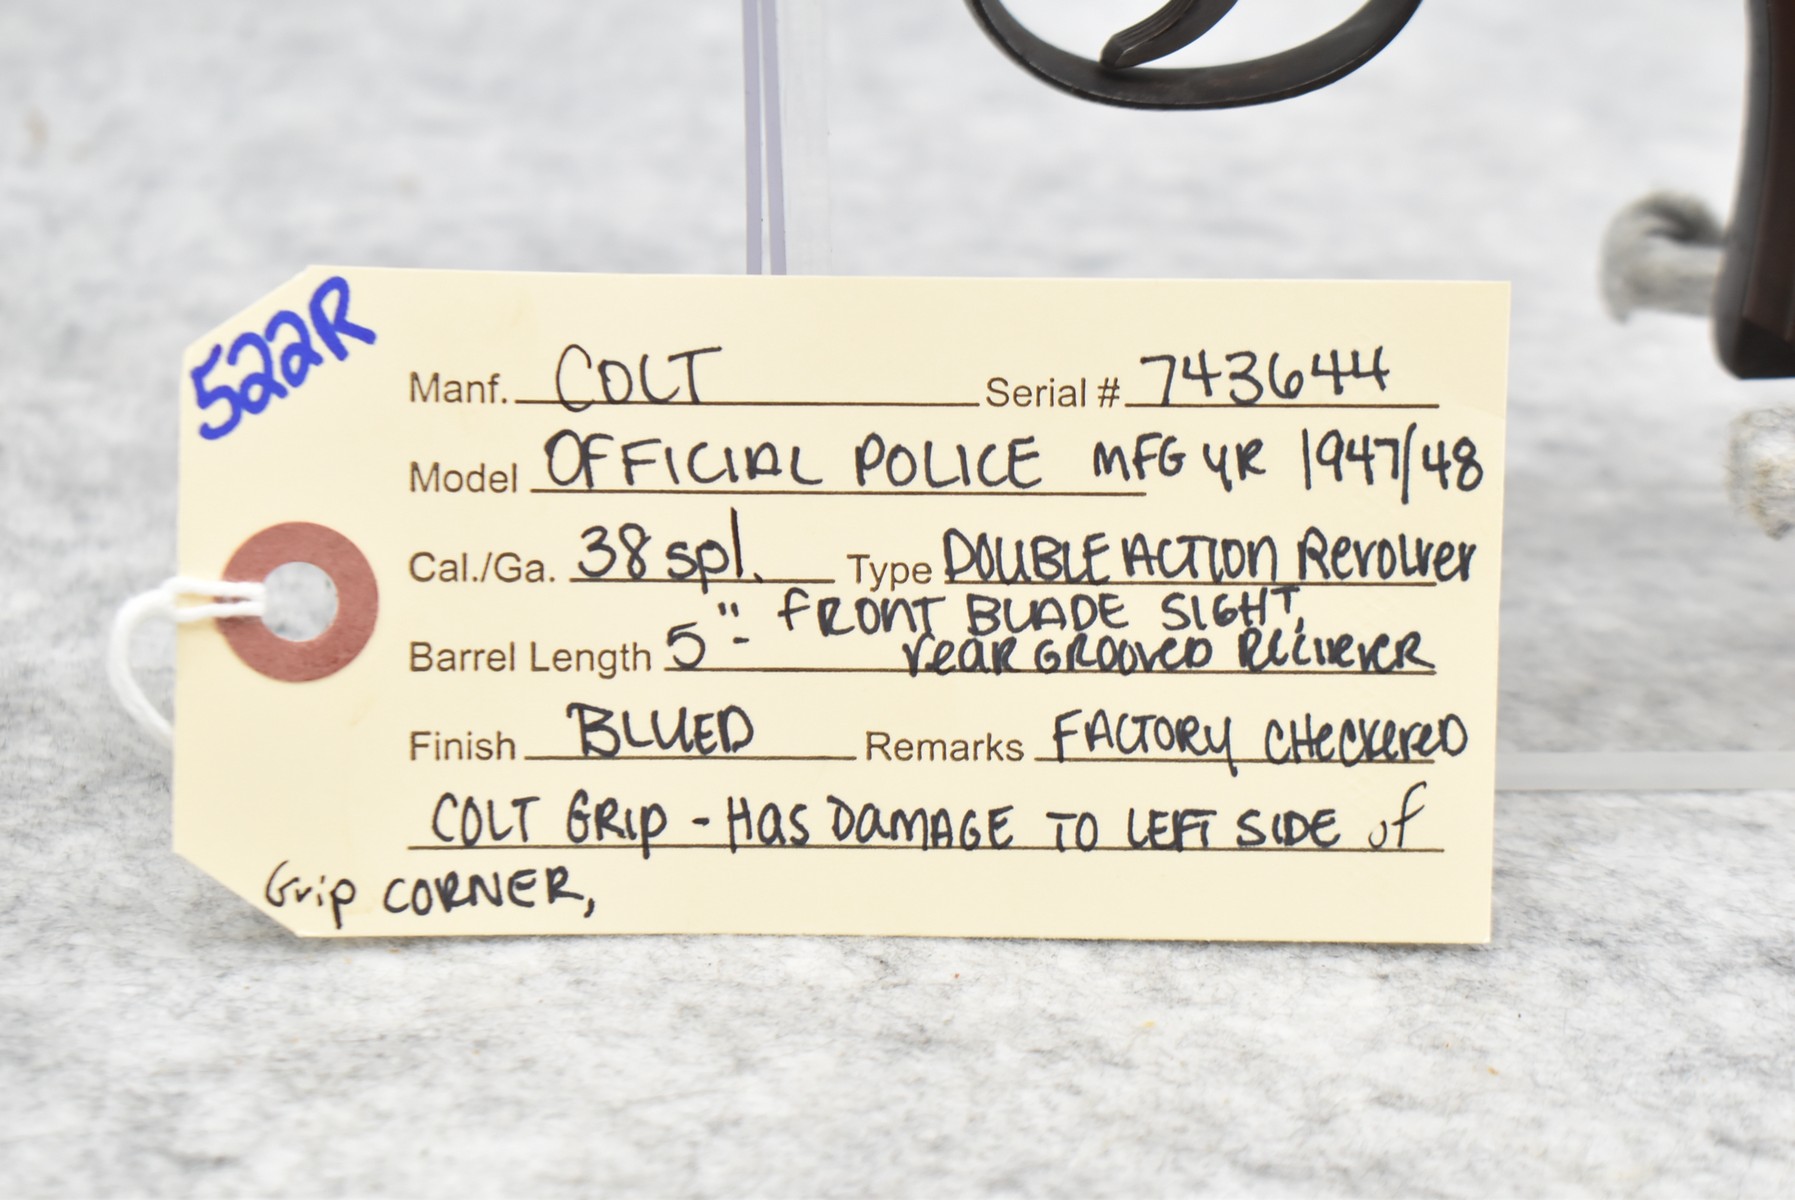 522R
Manf. COLT Serial # 743644
Model OFFICIAL POLICE MFG YR 1947/48
Cal./Ga. 38 spl. Type DOUBLE ACTION Revolver
Barrel Length 5"- FRONT BLADE SIGHT,
rear GROOVED Reciever
Finish BLUED Remarks FACTORY CHeckered
COLT GRIP - Has Damage to LEFT SIDE of
Grip CORNER,